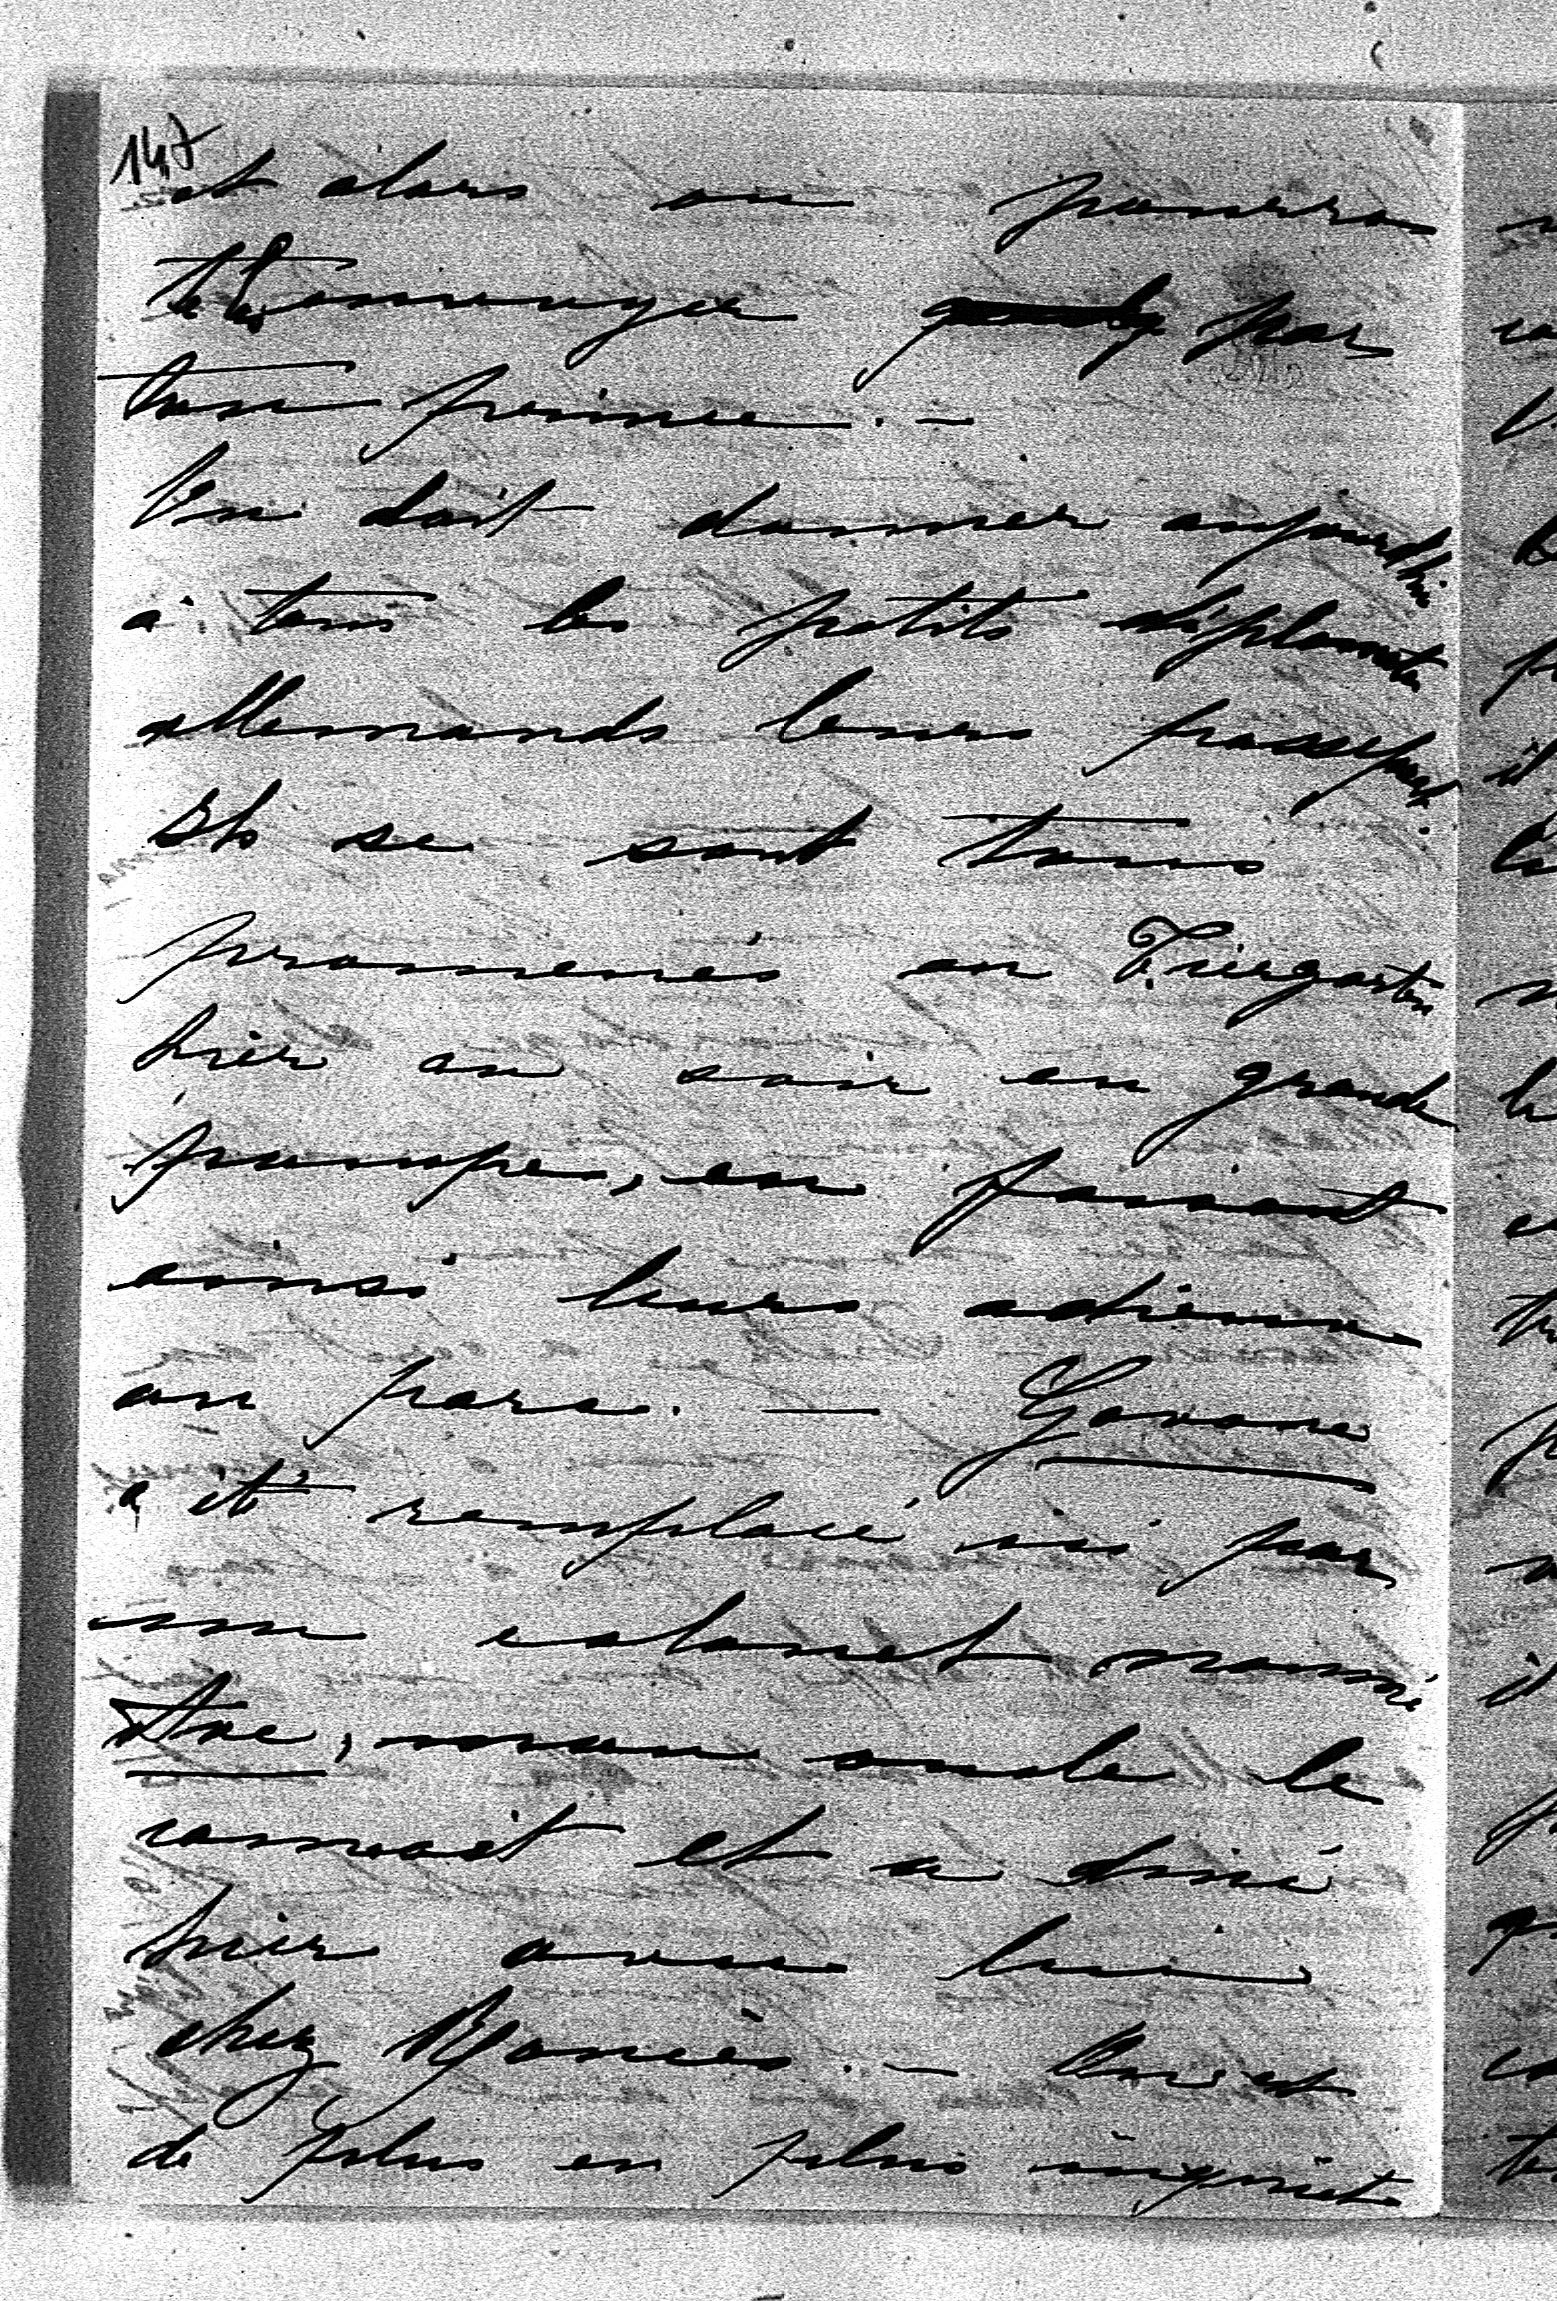 147
et alors on pourra
t'envoyer par
ton prince. —
On doit donner aujourdhui
à tous les petits diplomates
allemands leurs passeports.
Ils se sont tous
promenés au Tiergarten
hier au soir en grande
pompe, en faisant
ainsi leurs adieux
au parc. — Govone
a été remplacé ici par
un colonel nommé
le
connait et a diné
hier avec lui
chez — On est
de plus en plus inquiet